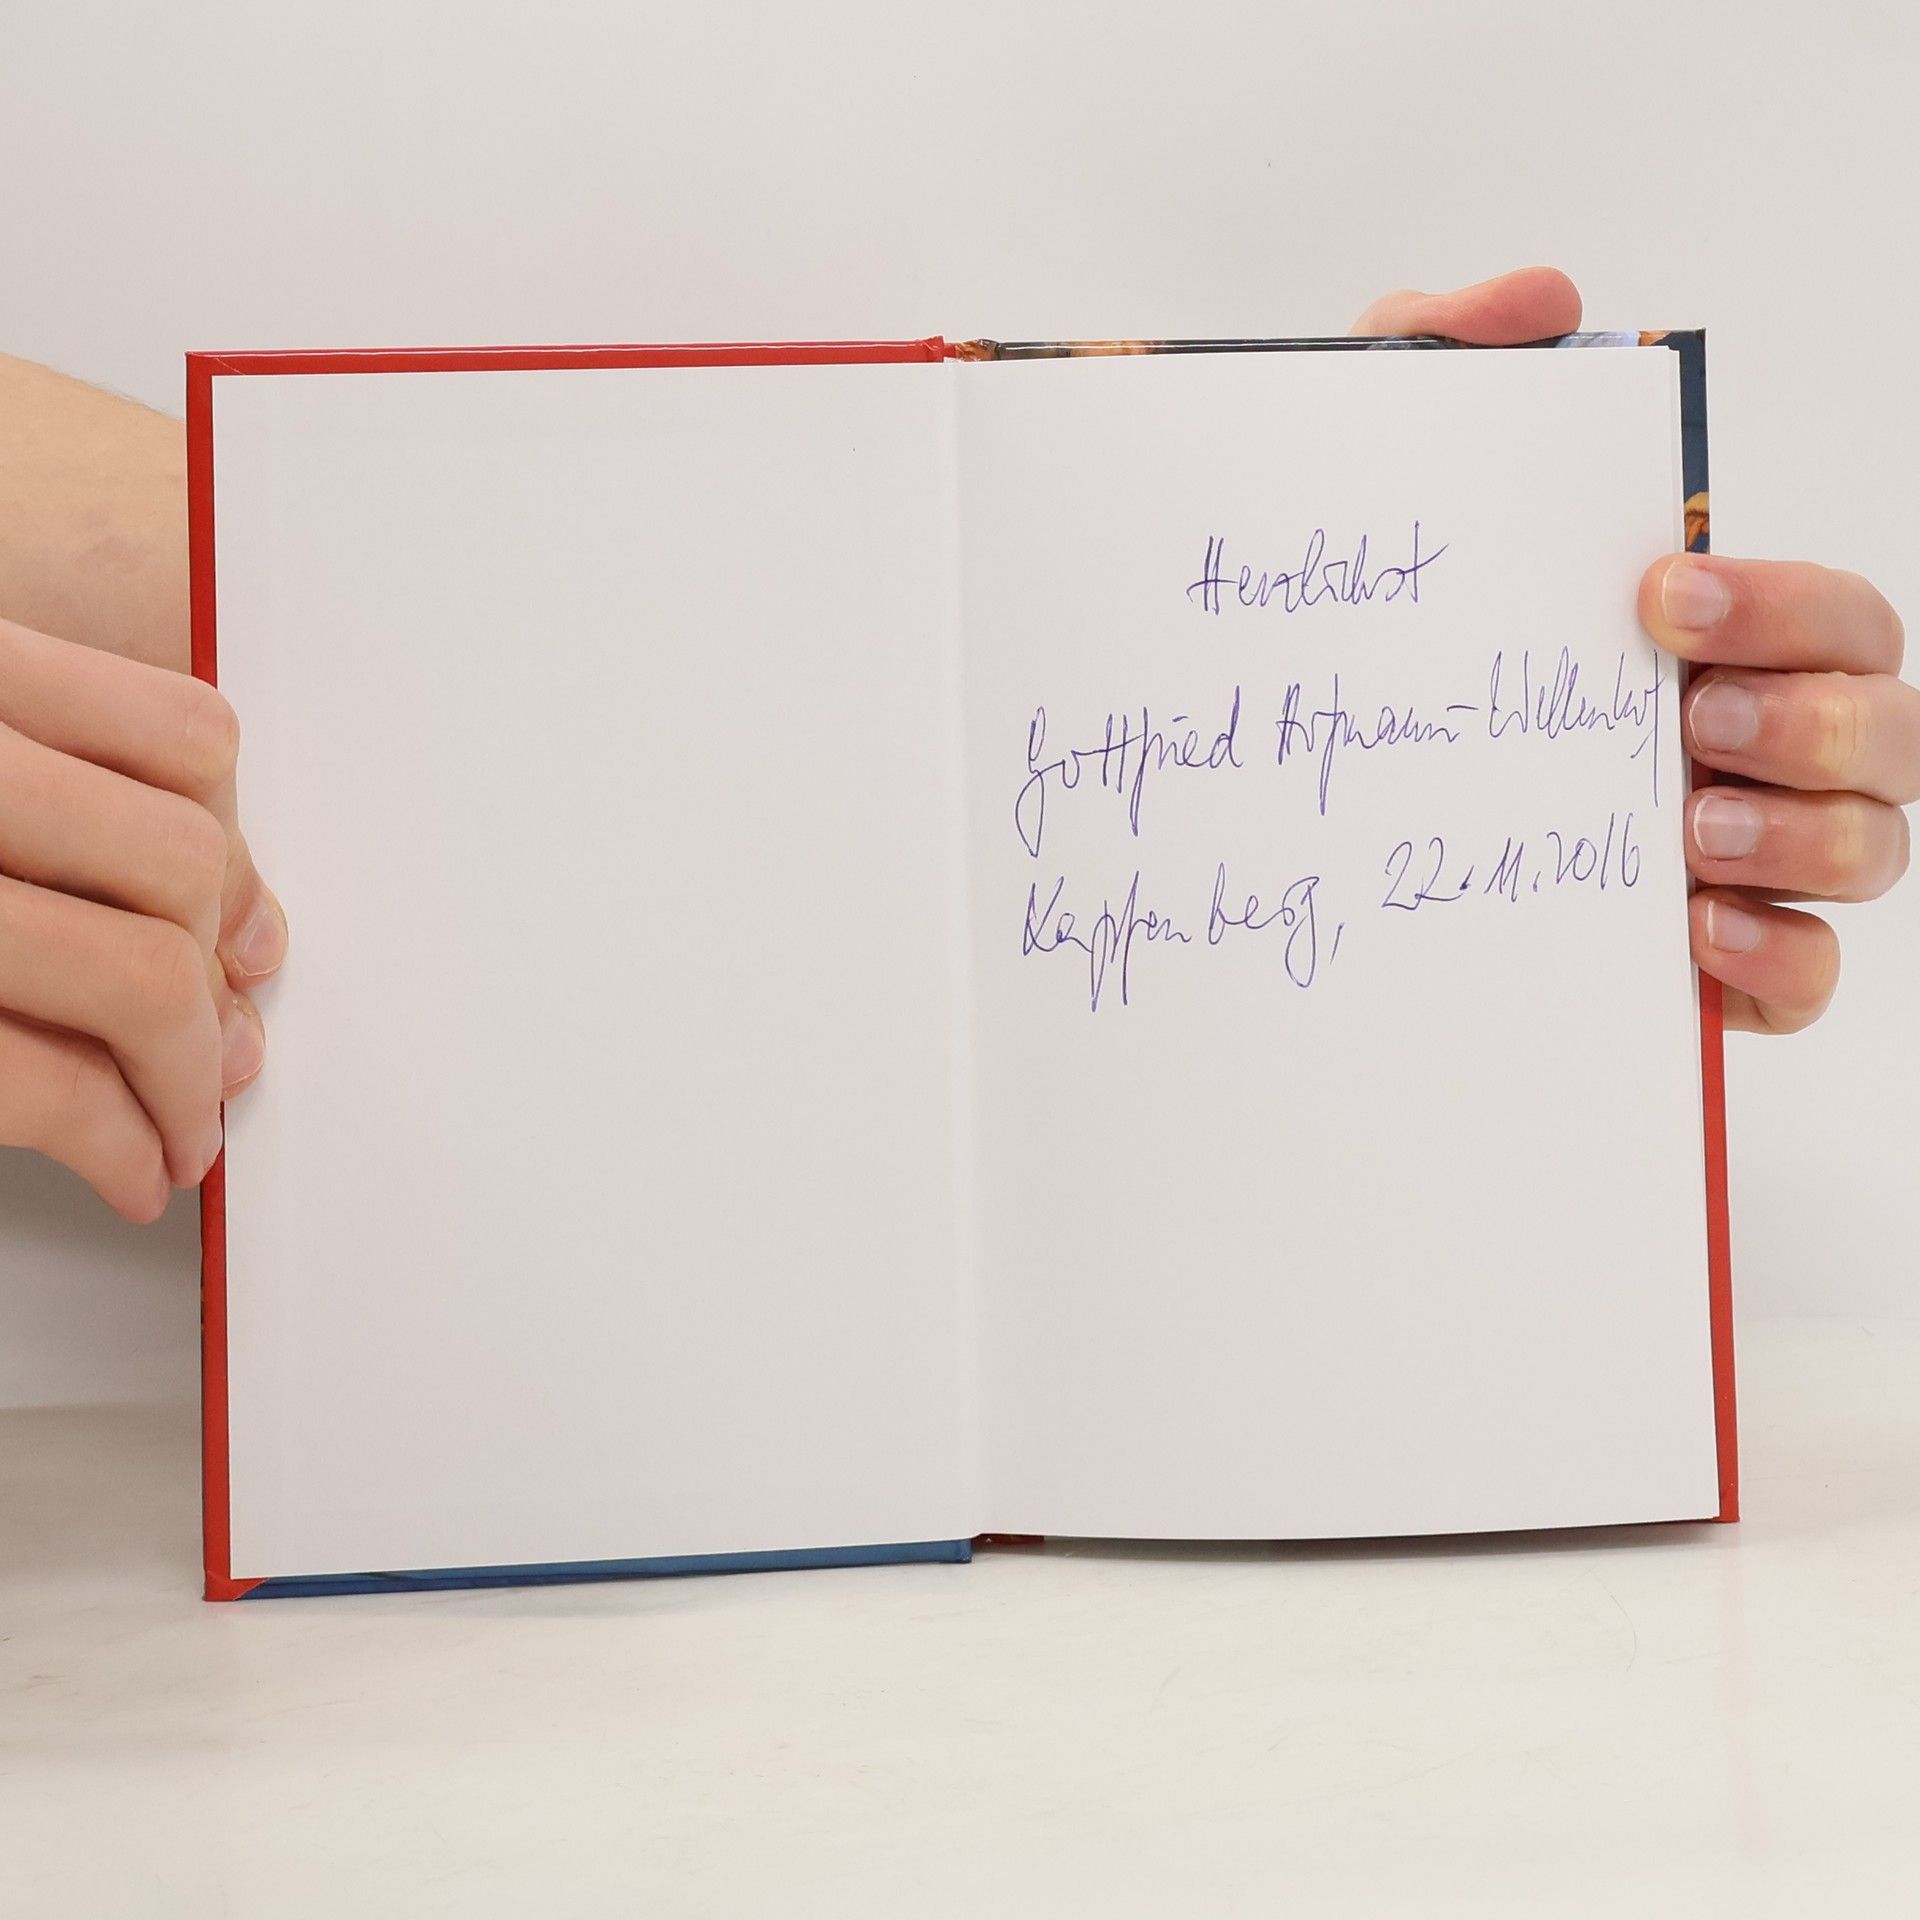 Herzlichst
Gottfried Hofmann-Wellenhof
Kapfenberg, 22.11.2016